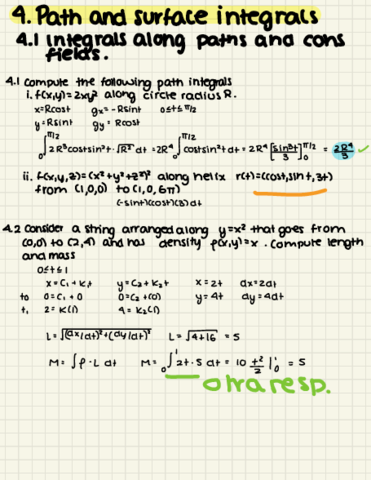 4. Path and surface integrals
4.1 Integrals along paths and cons
fields.
4.1 Compute the following path integrals
i. f(x,y)=2xy² along circle radius R.
x=Rcost gx=-Rsint 0≤t≤π/2
y=Rsint gy=Rcost
∫₀^{π/2} 2R³costsin²t·√R² dt=2R⁴∫₀^{π/2} costsin²t dt=2R⁴[sin³t/3]₀^{π/2}=2R⁴/3 ✓
ii. f(x,y,z)=(x²+y²+z²)² along helix r(t)=(cost,sint,3t)
from (1,0,0) to (1,0,6π)
(-sint)(cost)(3)dt
4.2 Consider a string arranged along y=x² that goes from
(0,0) to (2,4) and has density ρ(x,y)=x. Compute length
and mass
0≤t≤1
x=C₁+K₁t y=C₂+K₂t x=2t dx=2dt
t₀ 0=C₁+0 0=C₂+(0) y=4t dy=4dt
t₁ 2=K(1) 4=K₂(1)
L=√(dx/dt)²+(dy/dt)² L=√4+16=5
M=∫ρ·L dt M=∫₀¹2t·5dt=10 t²/2|₀¹=5
otra resp.